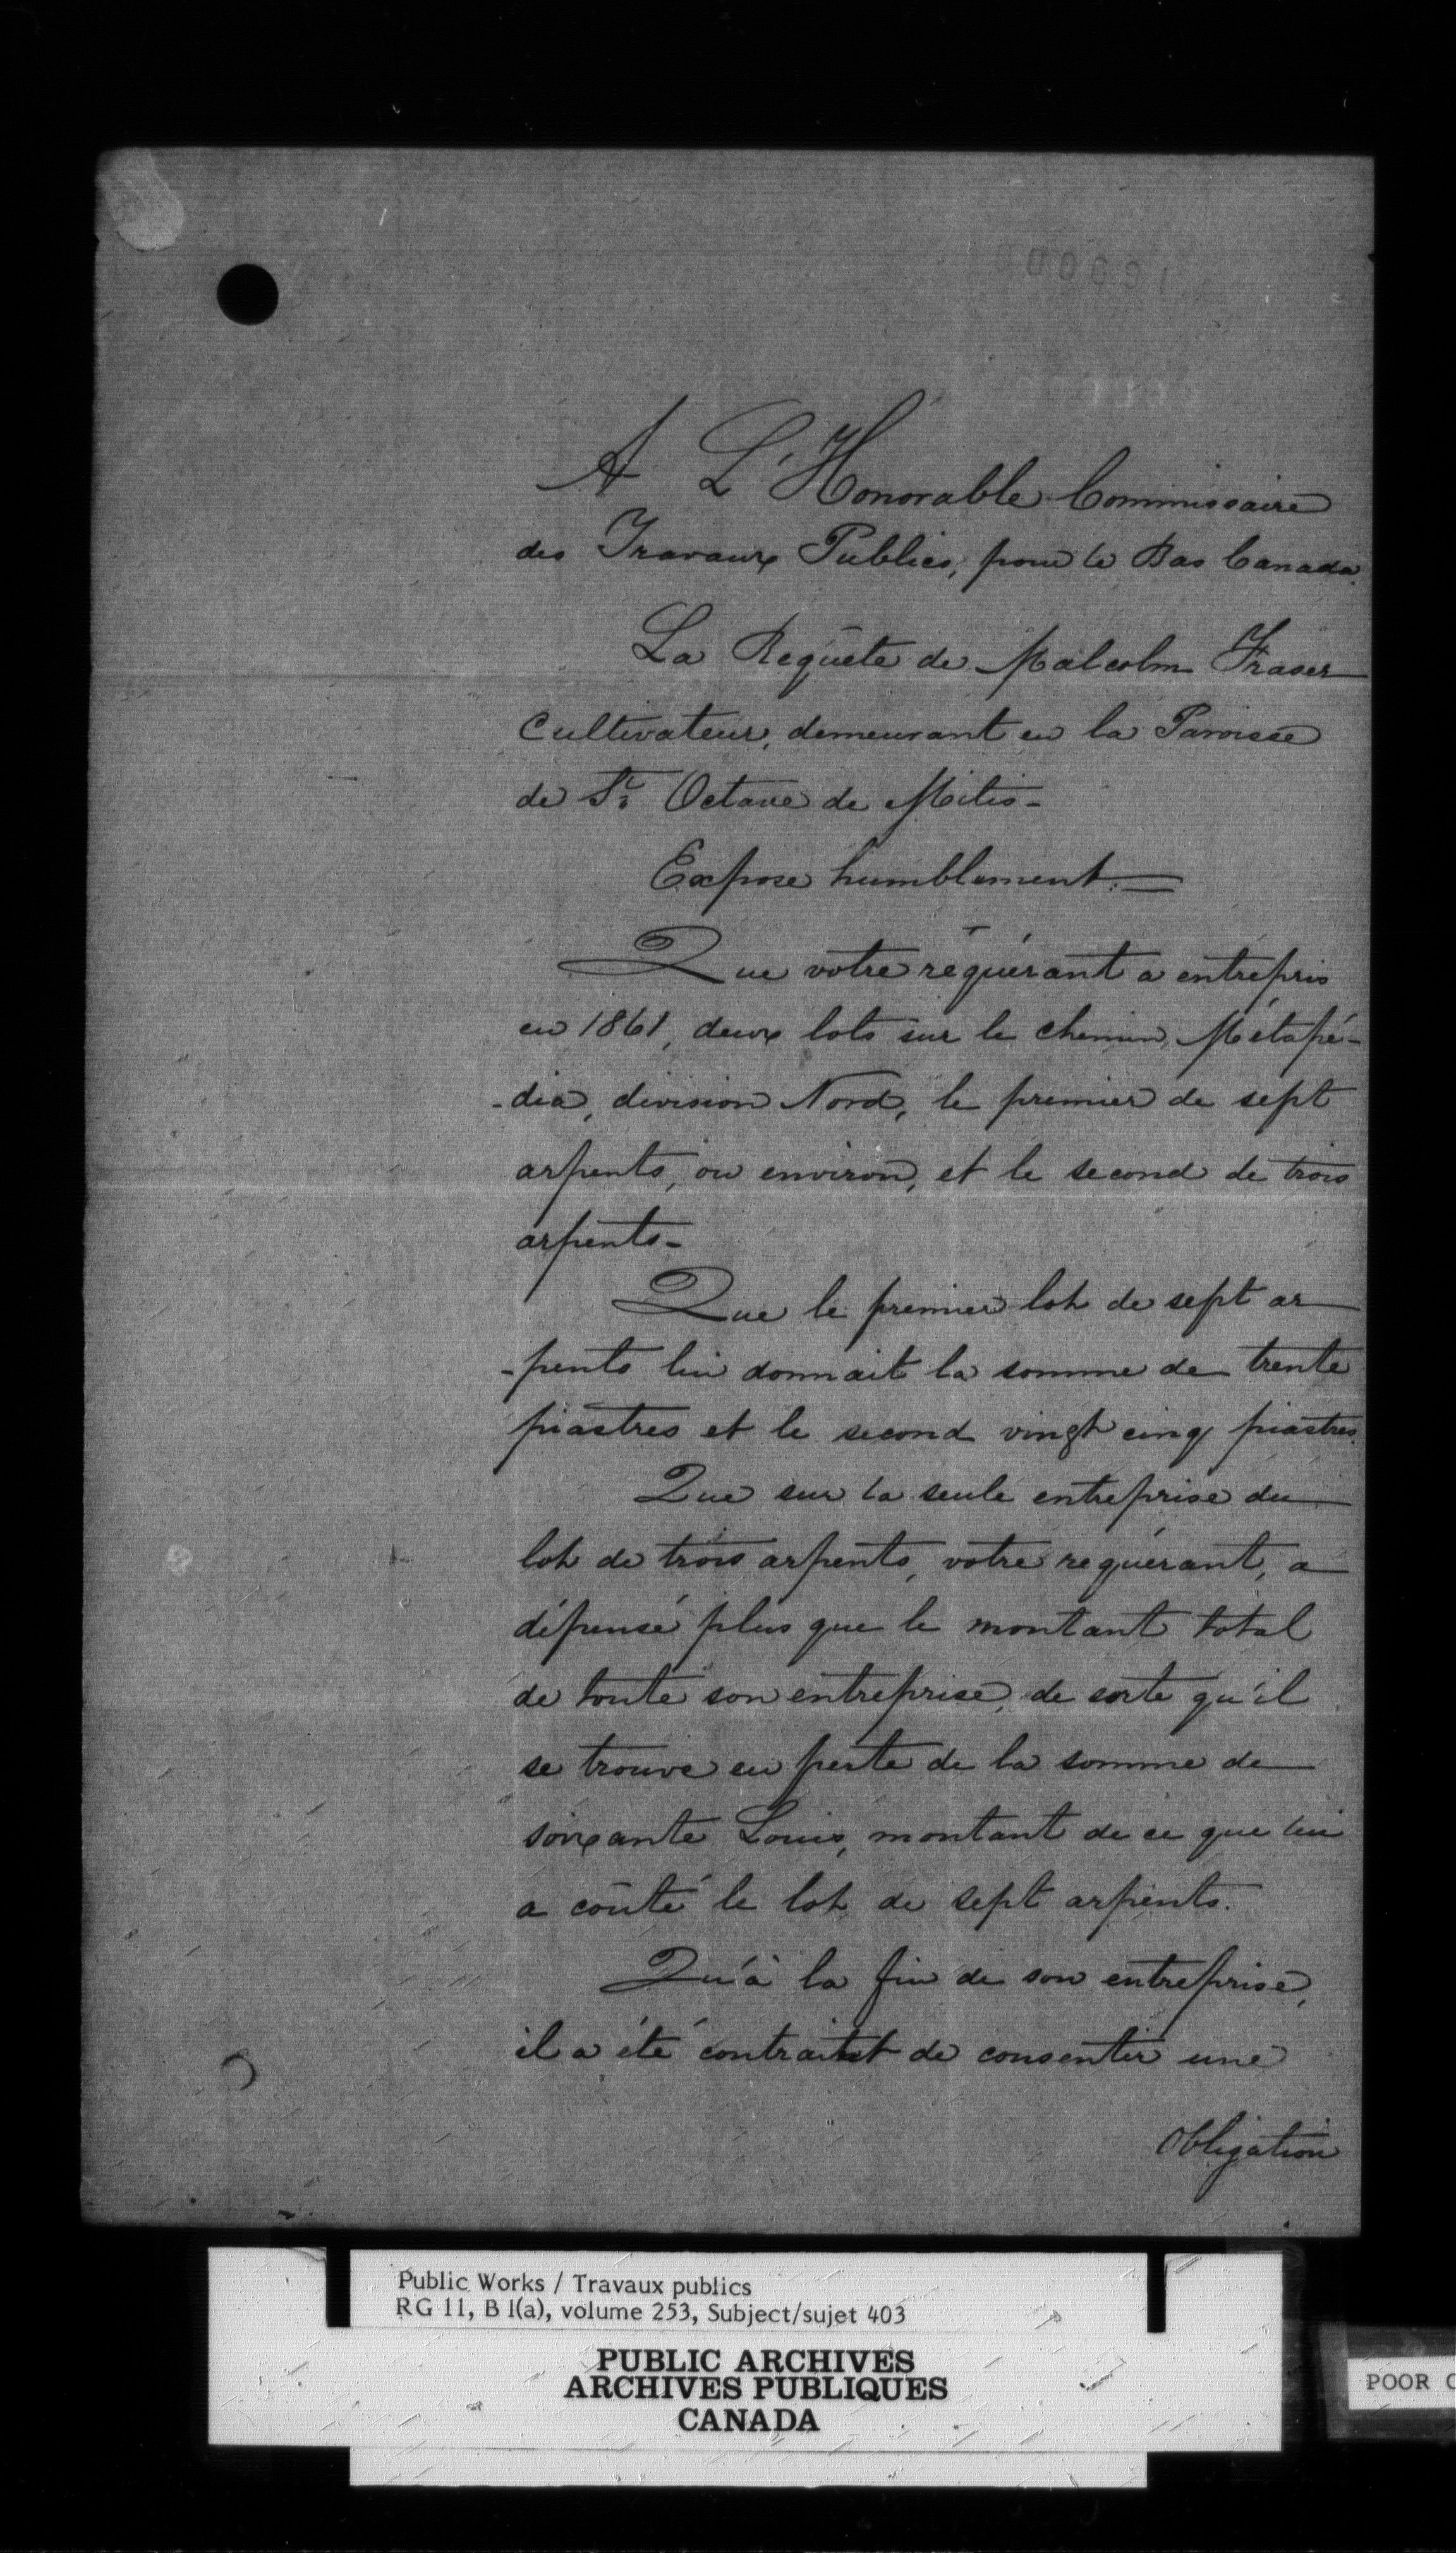 A L'Honorable Commissaire
des Travaux Publics, pour le Bas Canada.
La Requête de Malcolm Fraser
Cultivateur, demeurant en la Paroisse
de St Octave de Mitis-
Expose humblement:=
Que votre requérant a entrepris
en 1861, deux lots sur le chemin Métapé-
-dia, division Nord, le premier de sept
arpents, ou environ, et le second de trois
arpents-
Que le premier lot de sept ar
-pents lui donnait la somme de trente
piastres et le second vingt cinq piastres.
Que sur la seule entreprise du
lot de trois arpents, votre requérant, a
dépensé plus que le montant total
de toute son entreprise, de sorte qu'il
se trouve en perte de la somme de
soixante Louis, montant de ce que lui
a coûté le lot de sept arpents.
Qu'à la fin de son entreprise,
il a été de consentir une
Obligation
Public Works / Travaux publics
RG 11, B 1(a), volume 253, Subject/sujet 403
PUBLIC ARCHIVES
ARCHIVES PUBLIQUES
CANADA
POOR